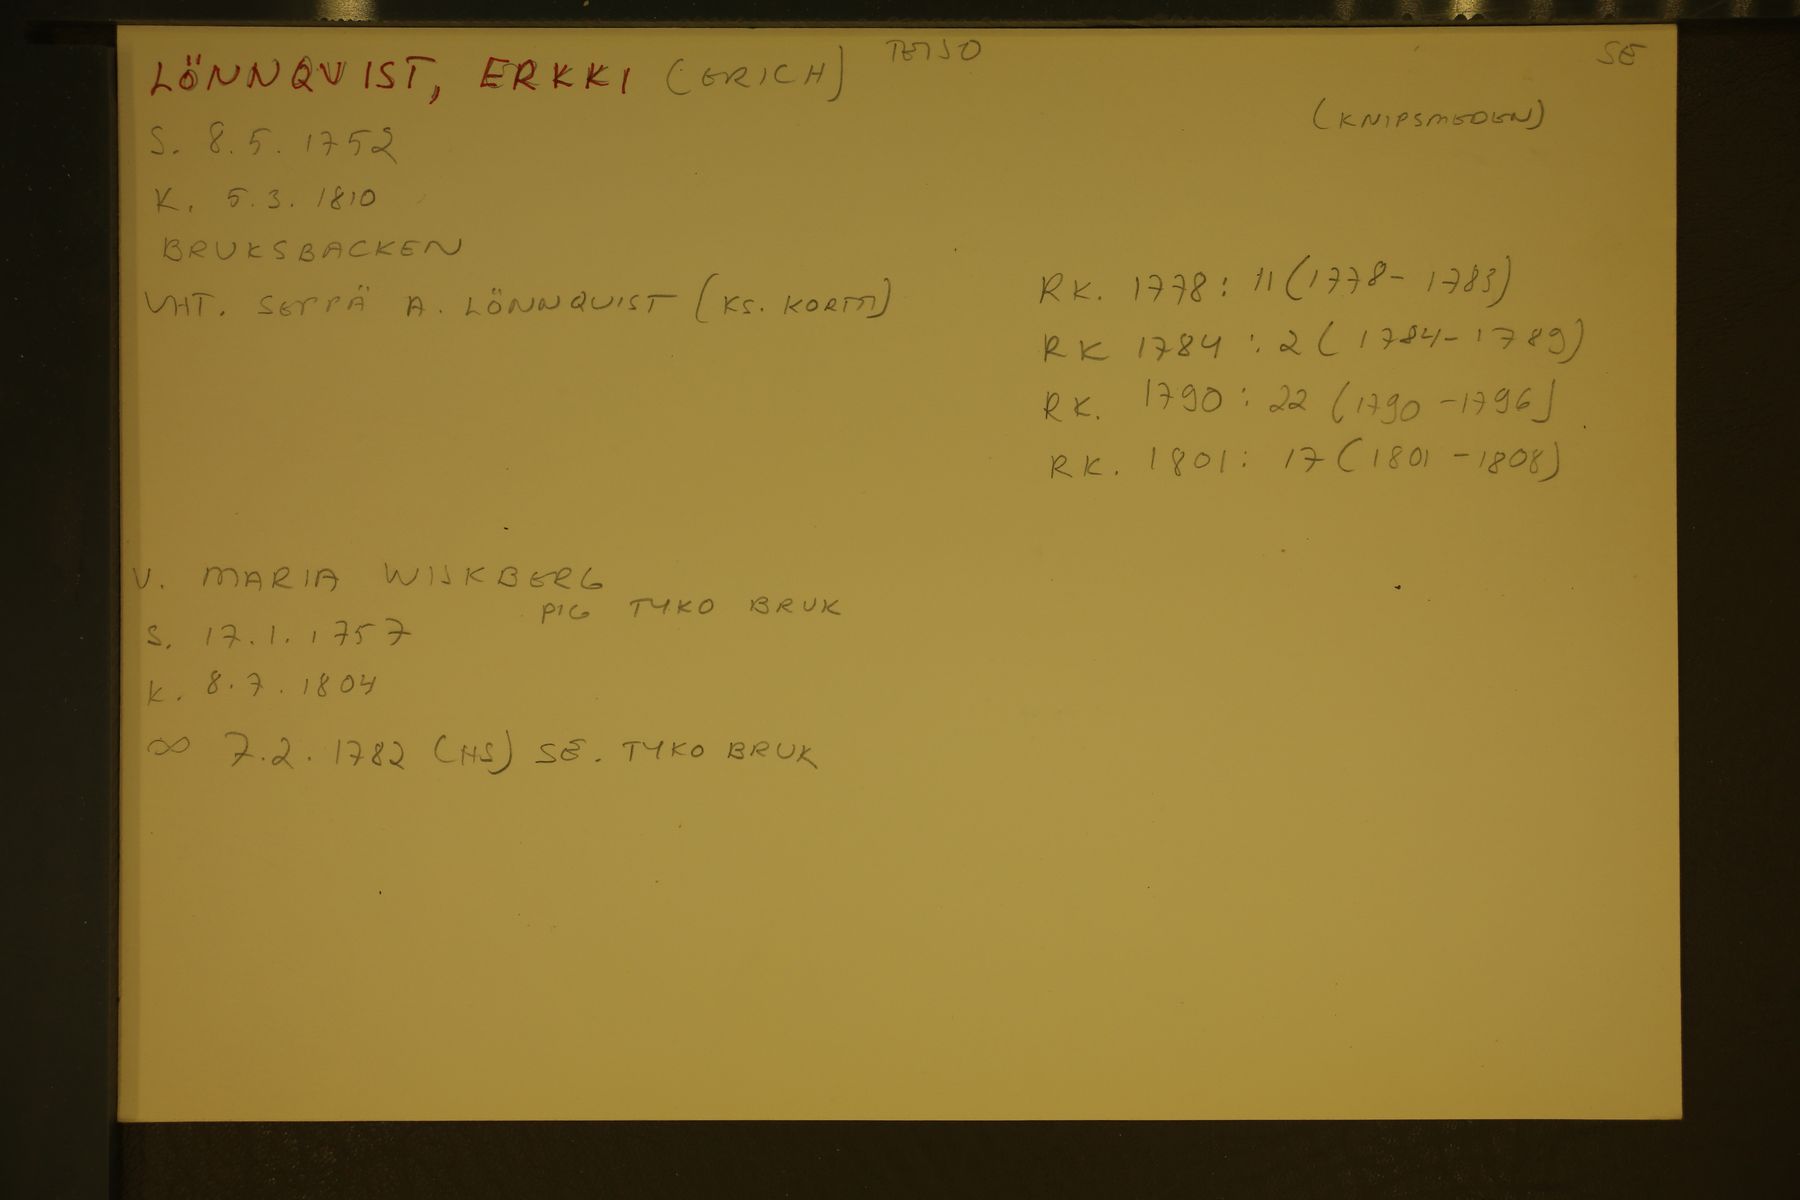 LÖNNQVIST, ERKKI (ERICH) TEIJO SE
(KNIPSMEDEN)
S. 8.5.1752
K. 5.3.1810
BRUKSBACKEN
VHT. SEPPÄ A. LÖNNQUIST (KS. KORTTI)
RK. 1778: 11 (1778-1783)
RK 1784: 2 (1784-1789)
RK. 1790: 22 (1790-1796)
RK. 1801: 17 (1801-1808)
V. MARIA WIJKBERG
PIG TYKO BRUK
S. 17.1.1757
K. 8.7.1804
∞ 7.2.1782 (HS) SE. TYKO BRUK